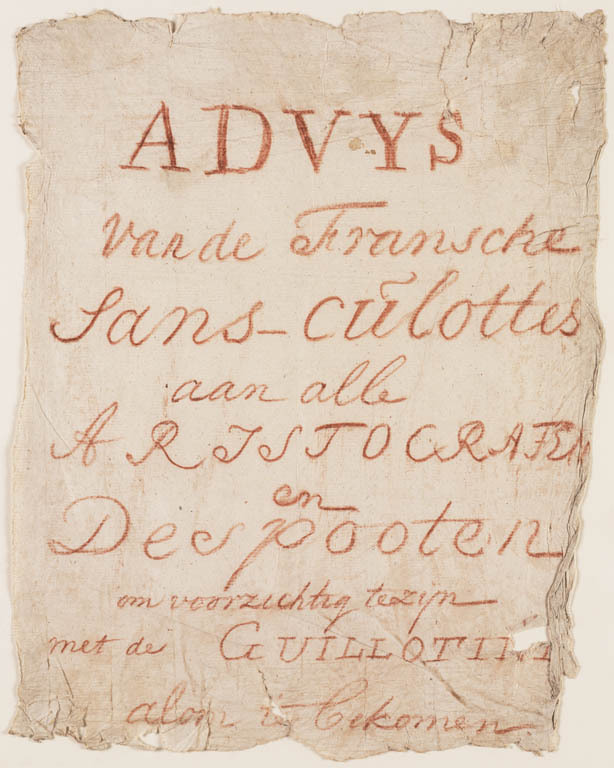 ADVYS
van de Fransche
Sans-cūlottes
aan alle
ARISTOCRATEN
en
Despooten
om voorzichtig te zijn
met de GUILLOTINE
alom te bekomen.